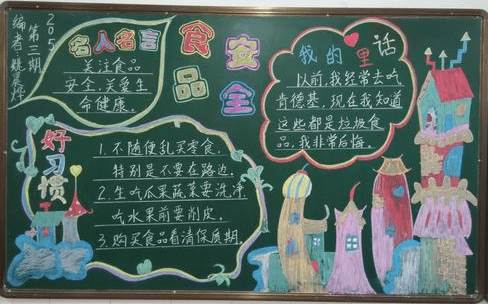 205
第三期
编者:姚
名人名言
关注食品
安全,关爱生
命健康。
食品安全
我的心里话
以前,我经常去吃
肯德基,现在我知道
这些都是垃圾食
品,我非常后悔。
好习惯
1.不随便乱买零食,
特别是不要在路边。
2.生吃瓜果蔬菜要洗净,
吃水果前要削皮。
3.购买食品看清保质期。